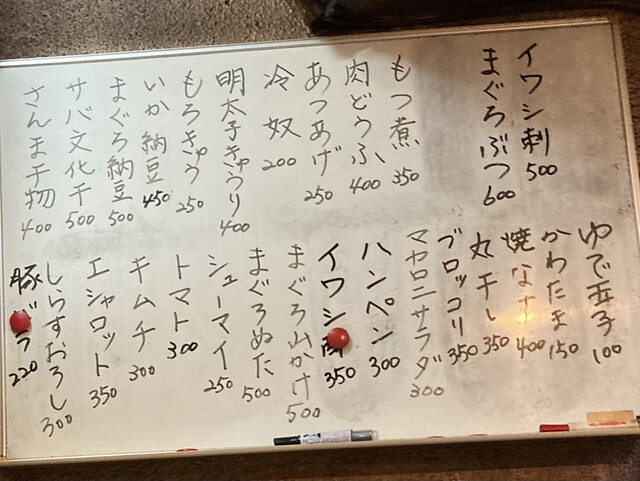 イワシ刺 500
まぐろぶつ 600
もつ煮 350
肉どうふ 400
あつあげ 250
冷奴 200
明太子きゅうり 400
もろきゅう 250
いか納豆 450
まぐろ納豆 500
サバ文化干 500
さんま干物 400
ゆで玉子 100
かわたま 150
焼なす 400
丸干し 350
ブロッコリ 350
マカロニサラダ 300
ハンペン 300
イワシ 350
まぐろ山かけ 500
まぐろぬた 500
シューマイ 250
トマト 300
キムチ 300
エシャロット 350
しらすおろし 300
豚 220